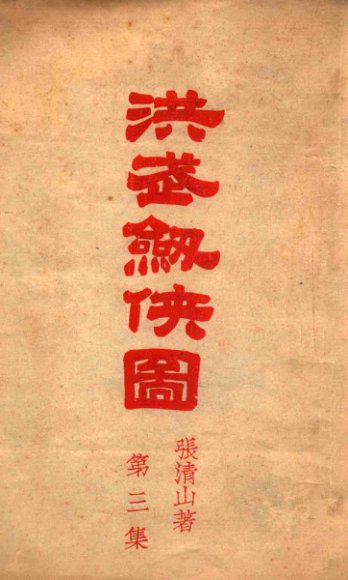 洪武劔俠圖
張清山著
第三集